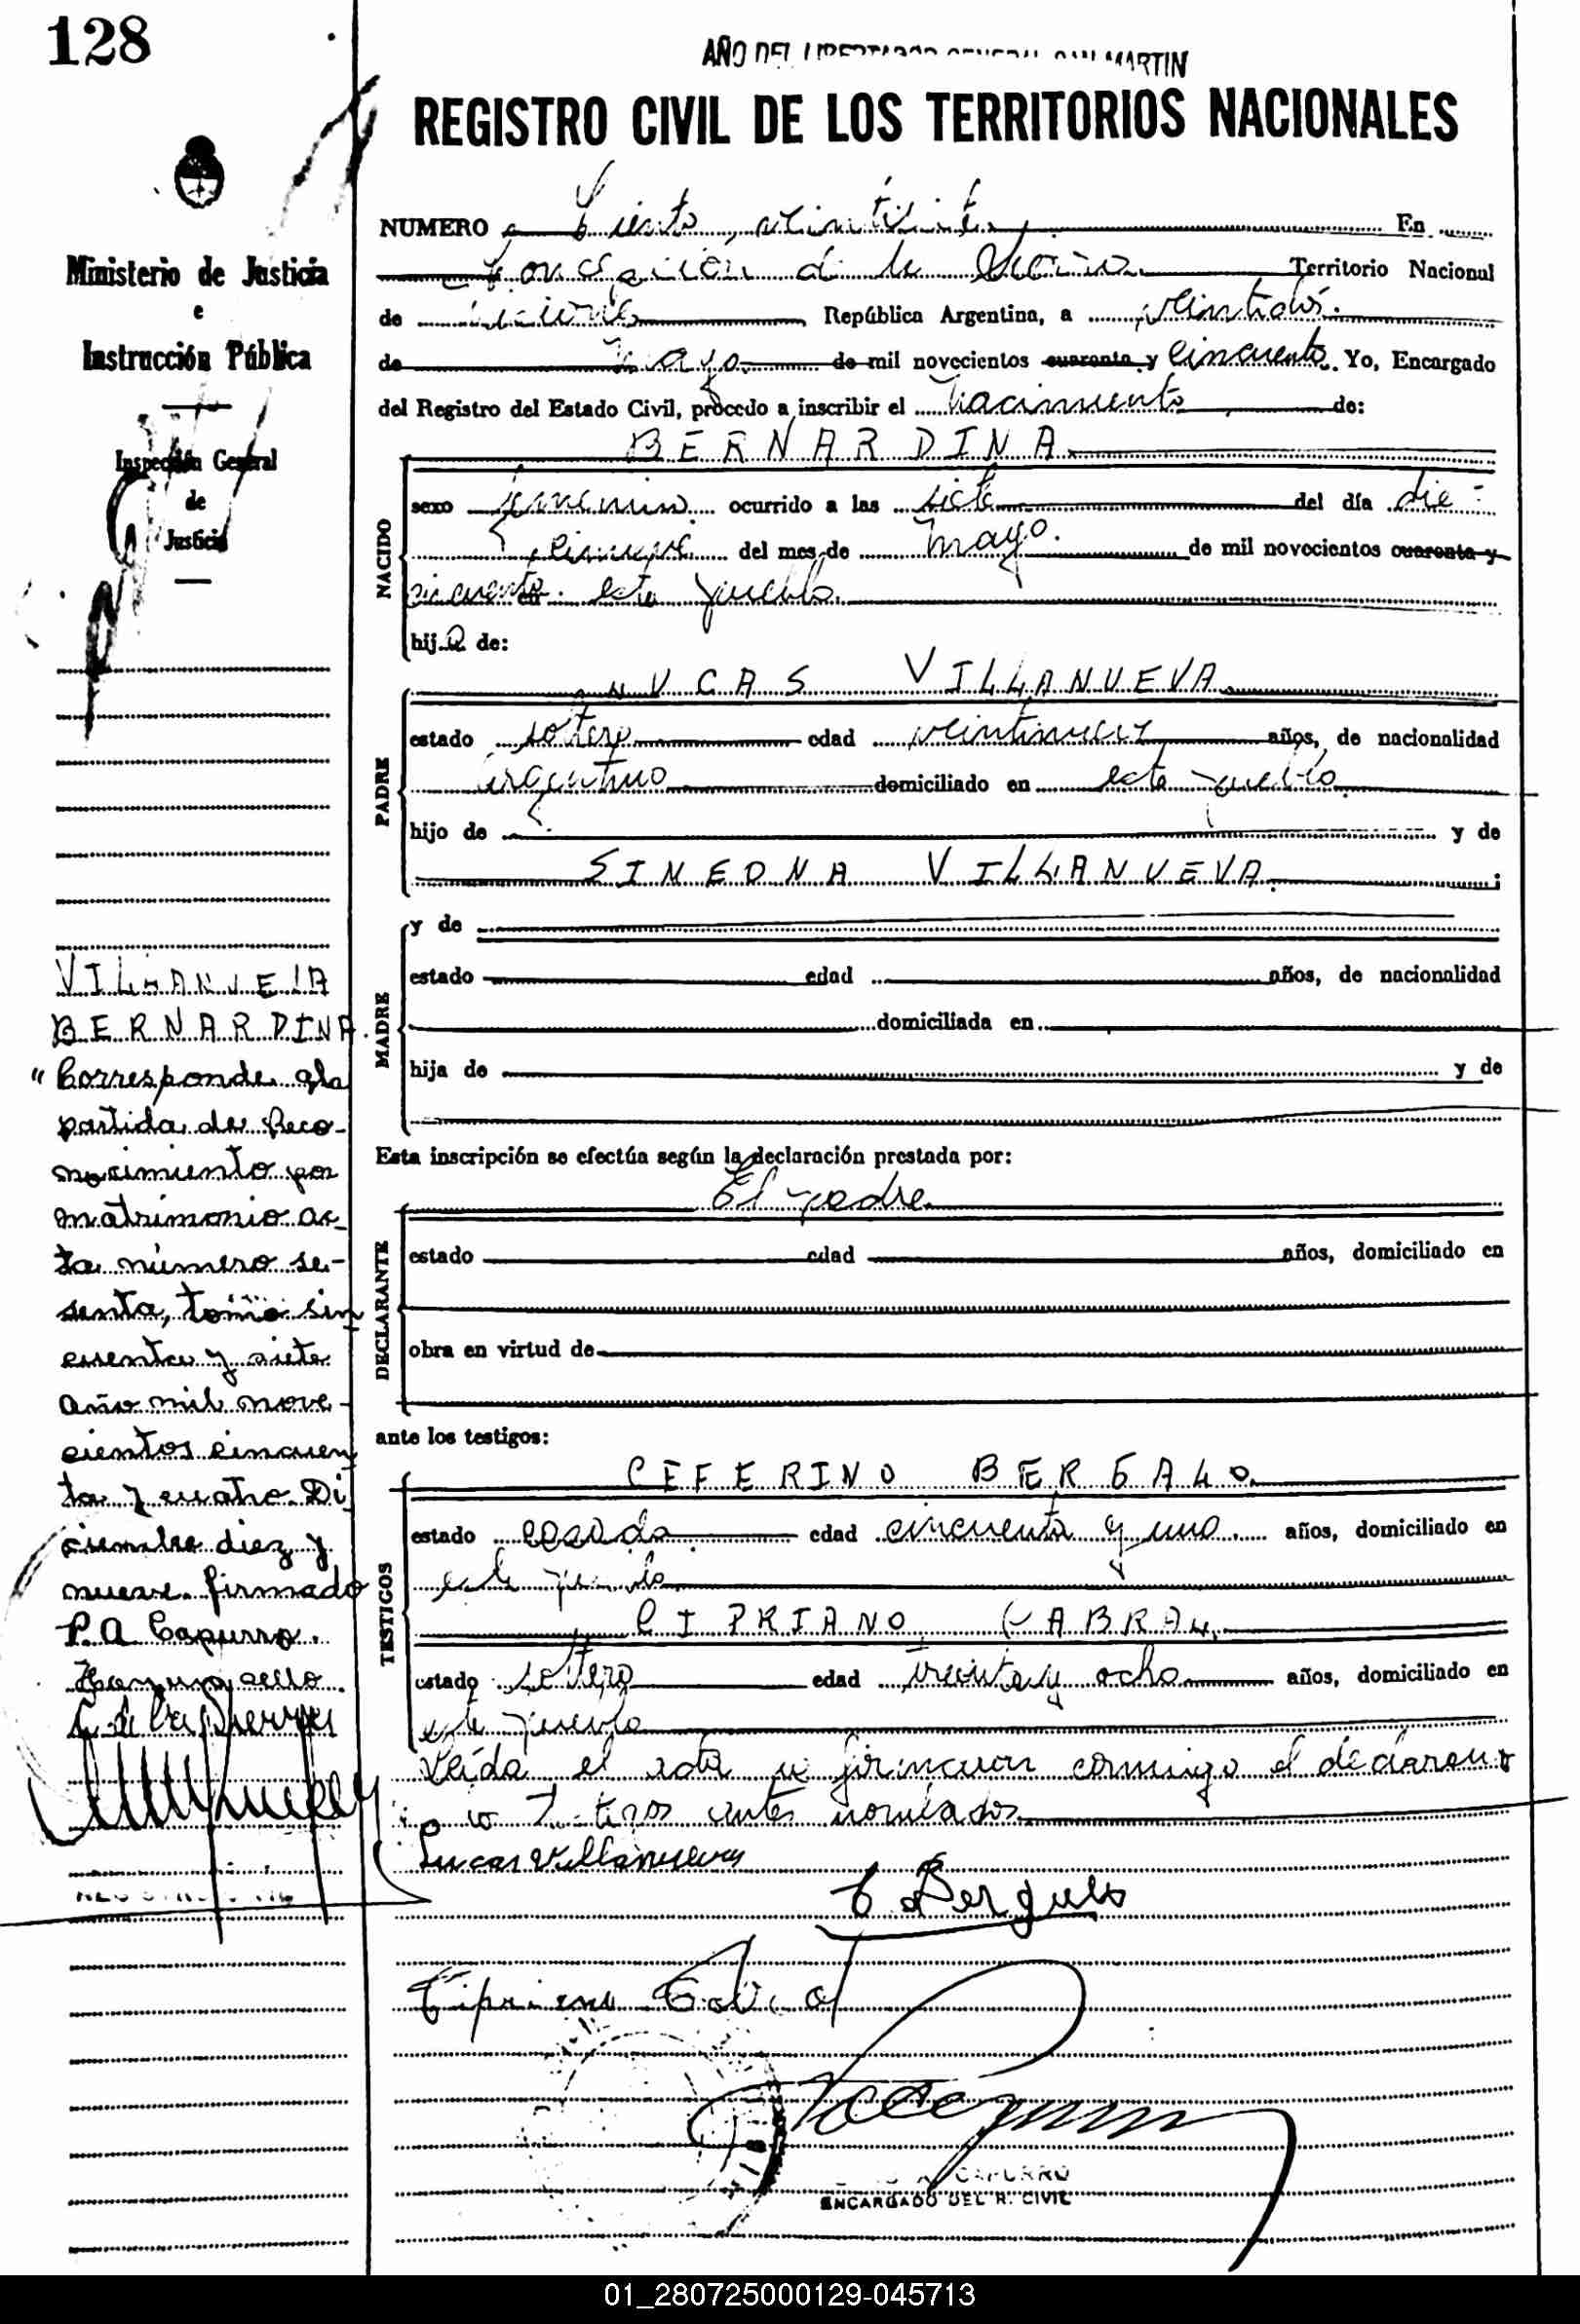 128
AÑO DEL LIBERTADOR GENERAL SAN MARTIN
REGISTRO CIVIL DE LOS TERRITORIOS NACIONALES
Ministerio de Justicia
e
Instrucción Pública
Inspección General
de
Justicia
NUMERO Ciento, En
Concepción de la Sierra Territorio Nacional
de Misiones República Argentina, a veintidós.
de Mayo de mil novecientos cuarenta y Cincuenta. Yo, Encargado
del Registro del Estado Civil, procedo a inscribir el Nacimiento de:
NACIDO
BERNARDINA
sexo femenino ocurrido a las siete del día die-
del mes de Mayo. de mil novecientos cuarenta y
cincuenta en este pueblo.
hija de:
PADRE
LUCAS VILLANUEVA
estado soltero edad veintinueve años, de nacionalidad
argentino domiciliado en este pueblo
hijo de y de
VILLANUEVA
MADRE
y de
estado edad años, de nacionalidad
domiciliada en
hija de y de
Esta inscripción se efectúa según la declaración prestada por:
DECLARANTE
El padre
estado edad años, domiciliado en
obra en virtud de
ante los testigos:
TESTIGOS
CEFERINO BERGALO
estado casado edad cincuenta y uno. años, domiciliado en
este pueblo
CIPRIANO CABRAL
estado soltero edad treinta y ocho años, domiciliado en
este pueblo
Leída el acta la firmaron conmigo el declarante
y los testigos antes nombrados
Lucas Villanueva
Cipriano Cabral
CAPURRO
ENCARGADO DEL R. CIVIL
VILLANUEVA
BERNARDINA.
"Corresponde a la
partida de Reco-
nocimiento por
matrimonio ac-
ta número se-
senta, tomo sin
cuenta y siete
año mil nove-
cientos cincuen
ta y cuatro Di
ciembre diez y
nueve firmado
P. A. Capurro.
Hay un sello
C. de la Sierra
01_280725000129-045713